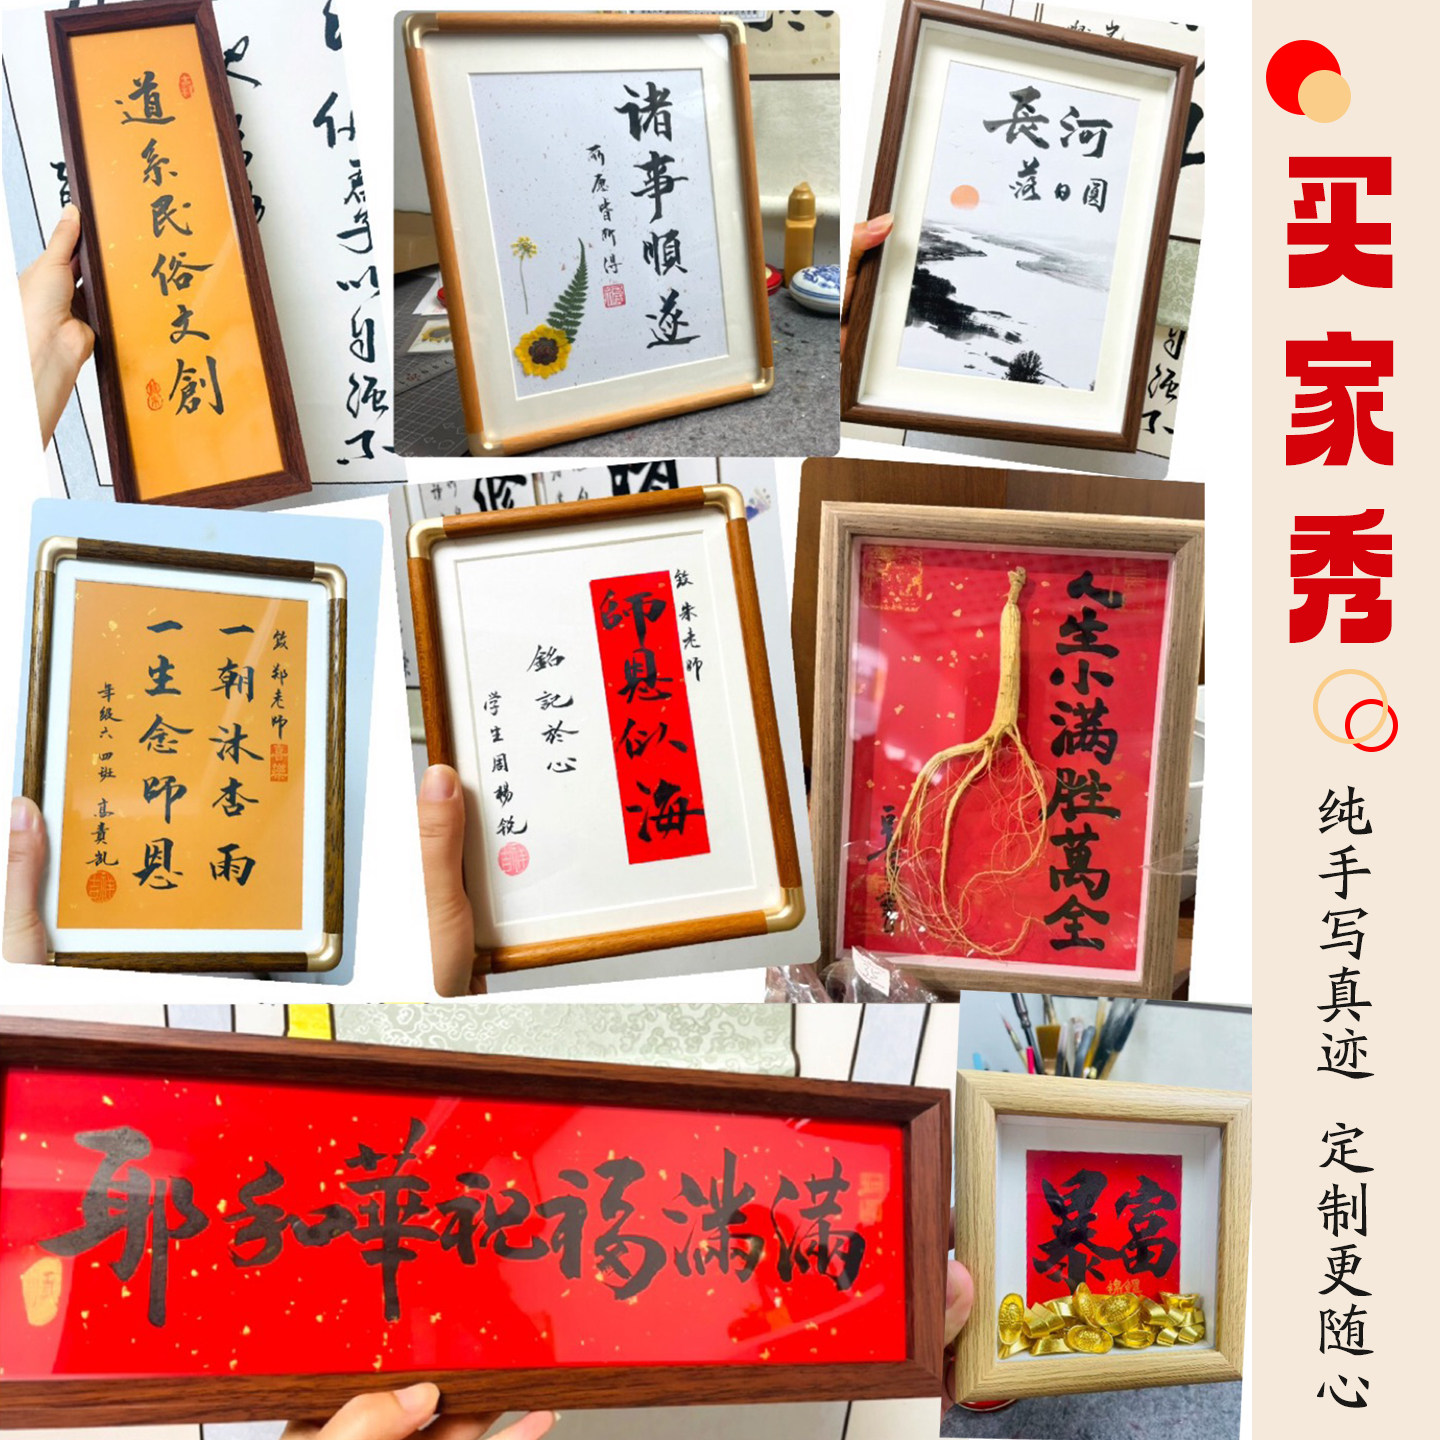 道系民俗文創
諸事順遂
所愿皆所得
長河
落日圆
致郑老师
一朝沐杏雨
一生念师恩
年级六 四班
致朱老师
師恩似海
銘記於心
学生周楊锐
人生小满胜萬全
耶和華祝福满满
暴富
买家秀
纯手写真迹 定制更随心